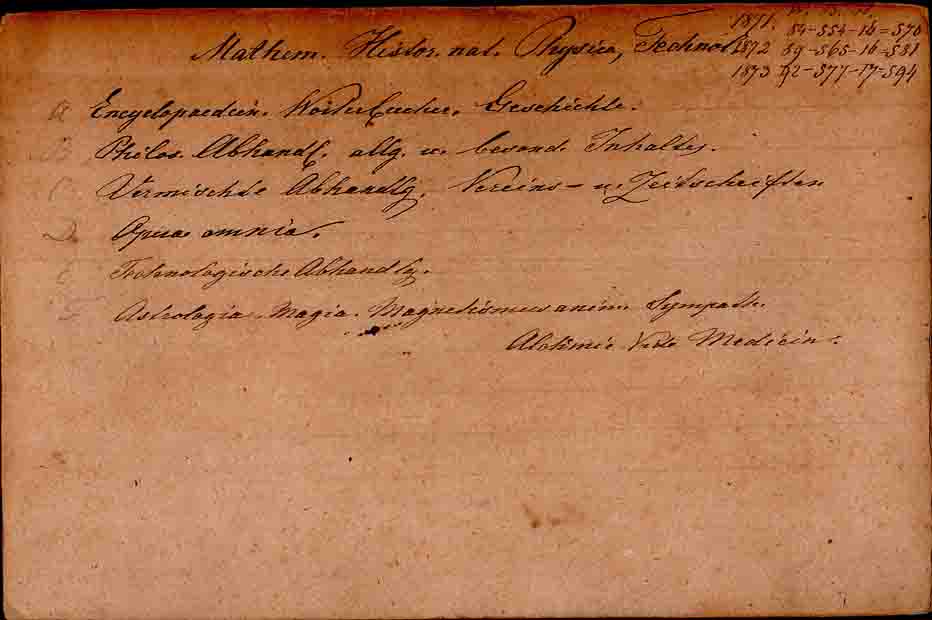 Mathem. Histor. nat. Physica, Technol.
1871. 84-554-16=570
1872 89-565-16=581
1873 92-577-17=594
A Encyclopaedien. Wörterbücher. Geschichte.
B Philos. Abhandl. allg. u. besond. Inhaltes.
C Vermischte Abhandlg. Vereins- u. Zeitschriften
D. Opera omnia.
E Technologische Abhandlg.
F Astrologia. Magia. Magnetismus anim. Sympath.
Alchimie Vide Medicin.